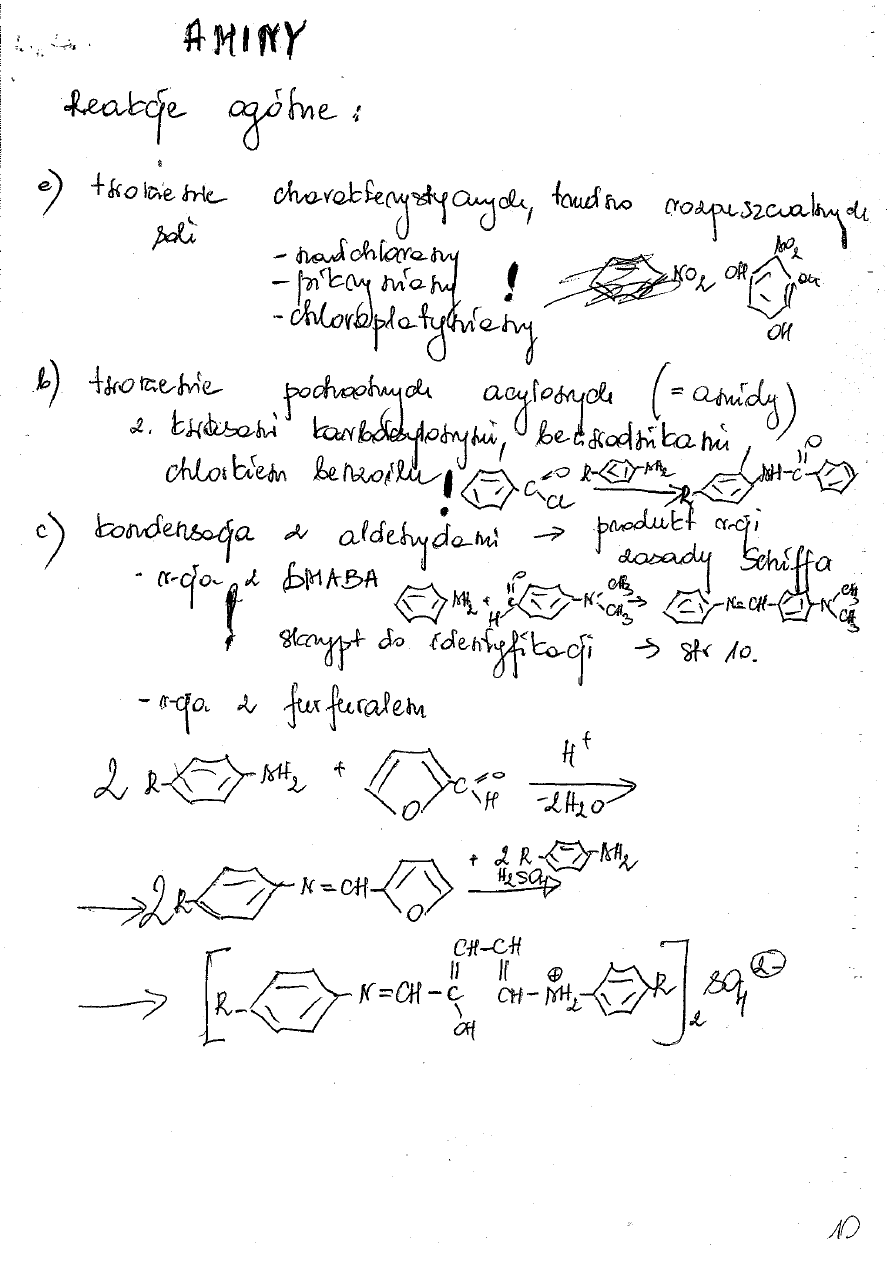 AMINY
Reakcje ogólne:
a) tworzenie charakterystycznych, trudno rozpuszczalnych
soli
- nadchlorany
- pikryniany !
- chloroplatyniany
NO2 OH NO2 OH OH
b) tworzenie pochodnych acylowych (= amidy)
z. kwasami karboksylowymi, bezwodnikami
chlorkiem benzoilu !
C O Cl R NH2 R NH-C O
c) kondensacja z aldehydami → produkt r-cji
zasady Schiffa
- r-cja z DMABA !
NH2 + C O H N CH3 CH3 → N=CH N CH3 CH3
skrypt do identyfikacji → str 10.
- r-cja z furfuralem
2 R NH2 + O C O H H+ -2H2O
→ 2 R N=CH O + 2 R NH2 H2SO4
CH-CH
→ [R N=CH-C CH-NH2 ⊕ R]2 SO4 2-
OH
10